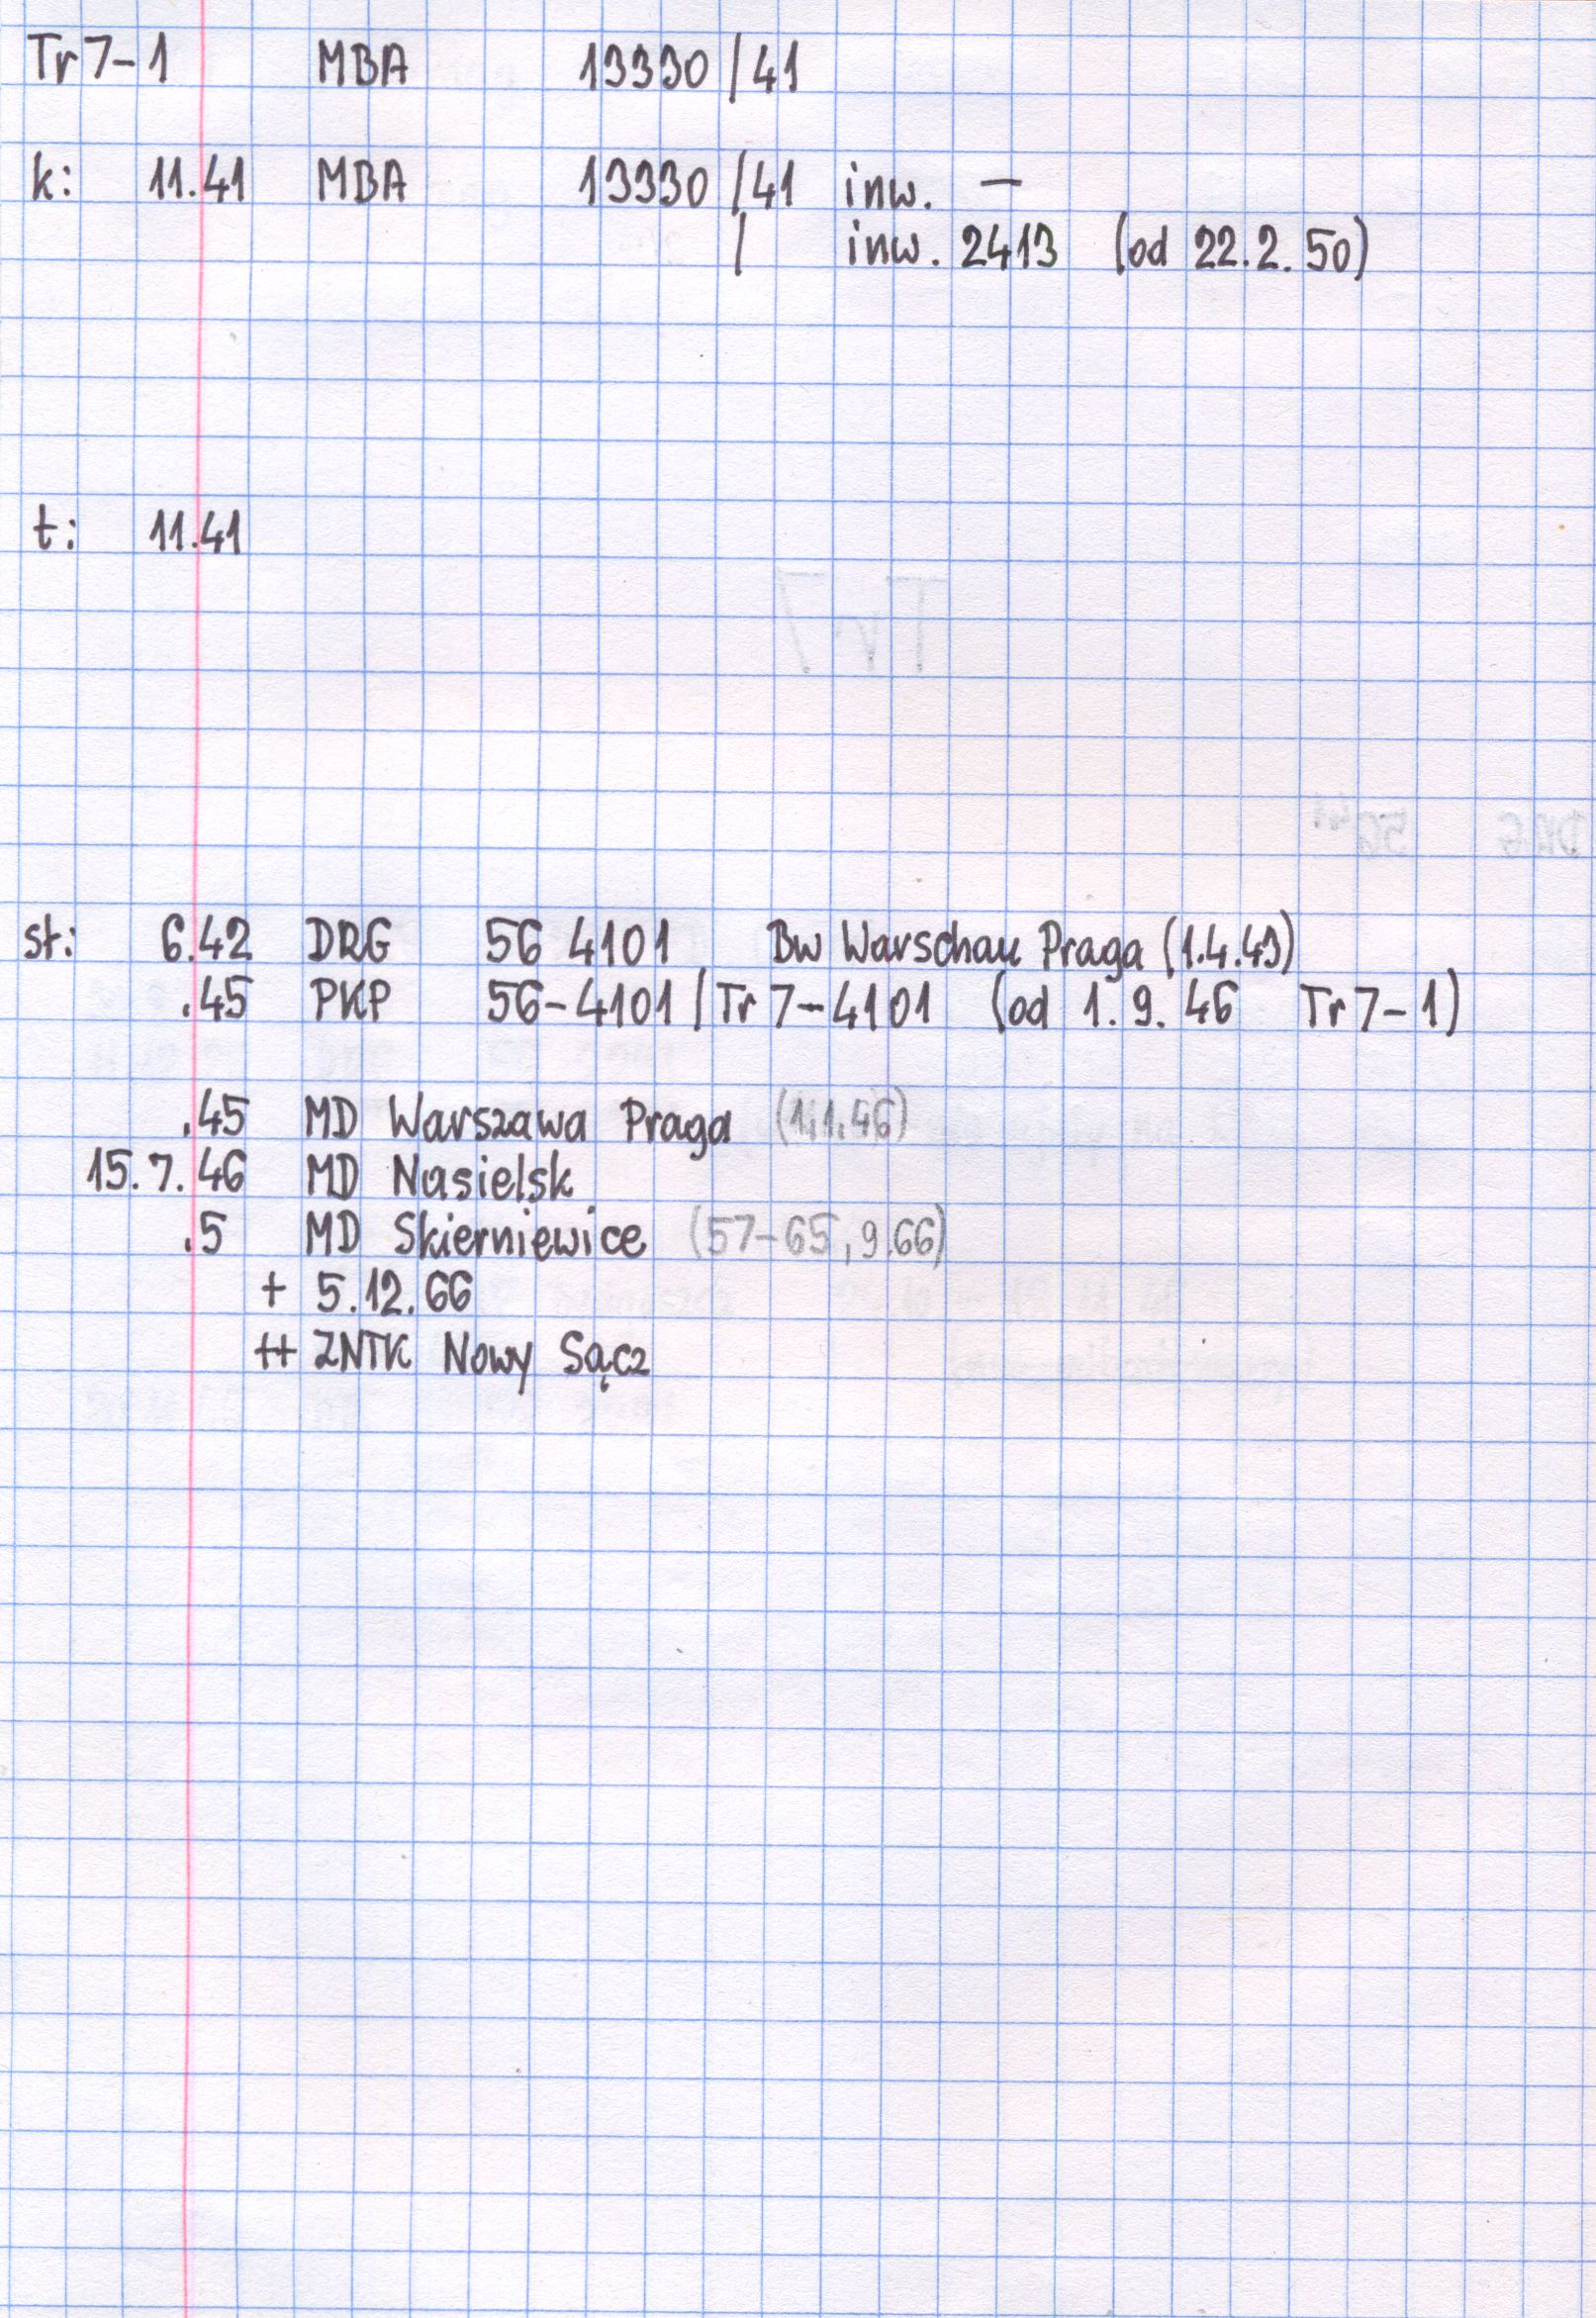 Tr 7-1 MBA 13330/41
k: 11.41 MBA 13330/41 inw. —
/ inw. 2413 (od 22.2.50)
t: 11.41
st: 6.42 DRG 56 4101 Bw Warschau Praga (1.4.43)
.45 PKP 56-4101 / Tr 7-4101 (od 1.9.46 Tr 7-1)
.45 MD Warszawa Praga (1.1.46)
15.7.46 MD Nasielsk
.5 MD Skierniewice (57-65, 9.66)
+ 5.12.66
++ ZNTK Nowy Sącz